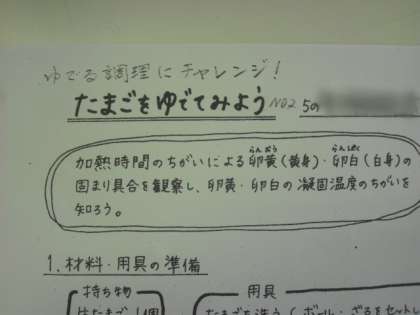 ゆでる調理にチャレンジ！
たまごをゆでてみよう NO2 5の
加熱時間のちがいによる卵黄(黄身)・卵白(白身)の
固まり具合を観察し、卵黄・卵白の凝固温度のちがいを
知ろう。
1. 材料・用具の準備
持ち物 用具